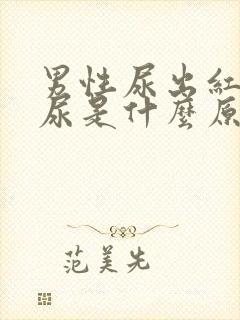 男性尿出紅
尿是什麼原
范美先